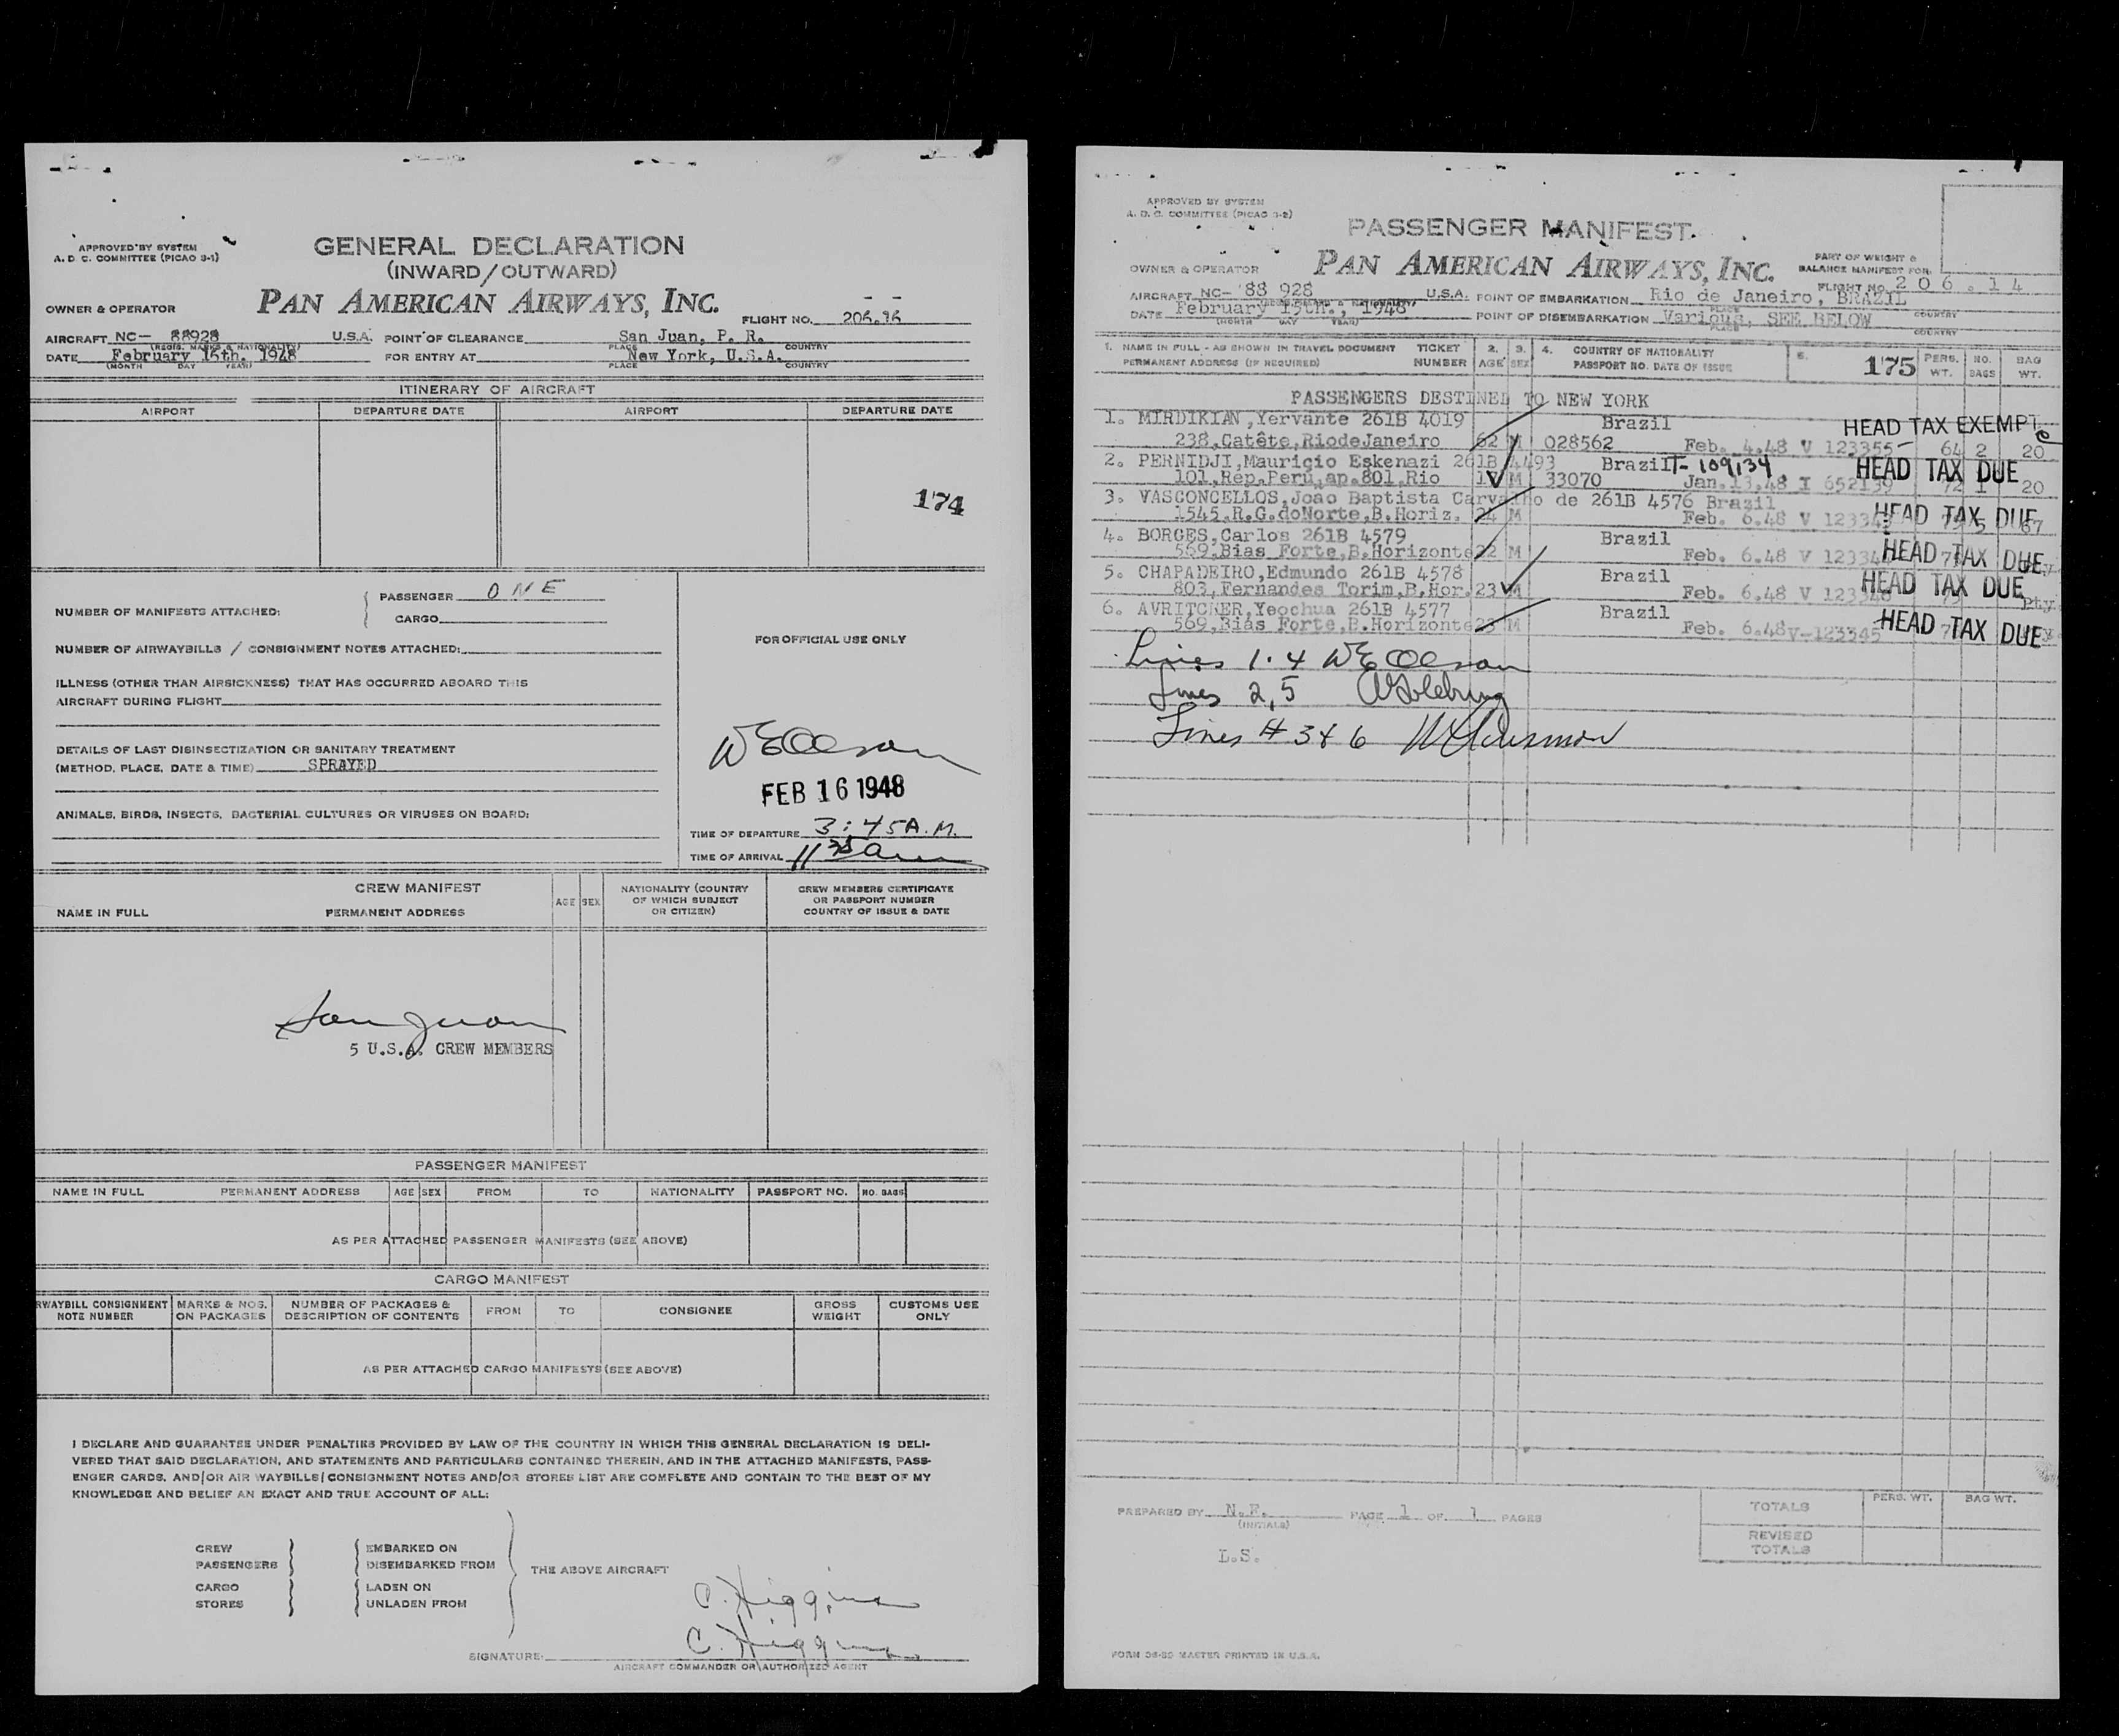 APPROVED BY SYSTEM
A. D. C. COMMITTEE (PICAO 3-1)
GENERAL DECLARATION
(INWARD/OUTWARD)
OWNER & OPERATOR
PAN AMERICAN AIRWAYS, INC.
FLIGHT NO.
AIRCRAFT NC- 88928 U.S.A. POINT OF CLEARANCE San Juan, P. R.
(REGIS. MARKS & NATIONALITY) PLACE COUNTRY
DATE February 15th. 1948 FOR ENTRY AT New York, U.S.A.
(MONTH DAY YEAR) PLACE COUNTRY
ITINERARY OF AIRCRAFT
AIRPORT DEPARTURE DATE AIRPORT DEPARTURE DATE
174
NUMBER OF MANIFESTS ATTACHED: PASSENGER ONE
CARGO
NUMBER OF AIRWAYBILLS / CONSIGNMENT NOTES ATTACHED:
ILLNESS (OTHER THAN AIRSICKNESS) THAT HAS OCCURRED ABOARD THIS
AIRCRAFT DURING FLIGHT
DETAILS OF LAST DISINSECTIZATION OR SANITARY TREATMENT
(METHOD, PLACE, DATE & TIME) SPRAYED
ANIMALS, BIRDS, INSECTS, BACTERIAL CULTURES OR VIRUSES ON BOARD:
FOR OFFICIAL USE ONLY
W E Olson
FEB 16 1948
TIME OF DEPARTURE 3:45 A.M.
TIME OF ARRIVAL
CREW MANIFEST
NAME IN FULL PERMANENT ADDRESS AGE SEX NATIONALITY (COUNTRY OF WHICH SUBJECT OR CITIZEN) CREW MEMBERS CERTIFICATE OR PASSPORT NUMBER COUNTRY OF ISSUE & DATE
San Juan
5 U.S.A. CREW MEMBERS
PASSENGER MANIFEST
NAME IN FULL PERMANENT ADDRESS AGE SEX FROM TO NATIONALITY PASSPORT NO. NO. BAGS
AS PER ATTACHED PASSENGER MANIFESTS (SEE ABOVE)
CARGO MANIFEST
RWAYBILL CONSIGNMENT NOTE NUMBER MARKS & NOS. ON PACKAGES NUMBER OF PACKAGES & DESCRIPTION OF CONTENTS FROM TO CONSIGNEE GROSS WEIGHT CUSTOMS USE ONLY
AS PER ATTACHED CARGO MANIFESTS (SEE ABOVE)
I DECLARE AND GUARANTEE UNDER PENALTIES PROVIDED BY LAW OF THE COUNTRY IN WHICH THIS GENERAL DECLARATION IS DELI-
VERED THAT SAID DECLARATION, AND STATEMENTS AND PARTICULARS CONTAINED THEREIN, AND IN THE ATTACHED MANIFESTS, PASS-
ENGER CARDS, AND/OR AIR WAYBILLS/CONSIGNMENT NOTES AND/OR STORES LIST ARE COMPLETE AND CONTAIN TO THE BEST OF MY
KNOWLEDGE AND BELIEF AN EXACT AND TRUE ACCOUNT OF ALL:
CREW EMBARKED ON
PASSENGERS DISEMBARKED FROM
THE ABOVE AIRCRAFT
CARGO LADEN ON
STORES UNLADEN FROM
C. Higgins
C. Higgins
SIGNATURE:
AIRCRAFT COMMANDER OR AUTHORIZED AGENT
APPROVED BY SYSTEM
A. D. C. COMMITTEE (PICAO 3-2)
PASSENGER MANIFEST
PAN AMERICAN AIRWAYS, INC.
OWNER & OPERATOR
PART OF WEIGHT &
BALANCE MANIFEST FOR:
FLIGHT NO. 206.14
AIRCRAFT NC- 88 928 U.S.A. POINT OF EMBARKATION Rio de Janeiro, BRAZIL
PLACE COUNTRY
DATE February 15th., 1948 POINT OF DISEMBARKATION Various, SEE BELOW
(MONTH DAY YEAR) PLACE COUNTRY
1. NAME IN FULL - AS SHOWN IN TRAVEL DOCUMENT TICKET 2. 3. 4. COUNTRY OF NATIONALITY 5. 175 PERS. NO. BAG
PERMANENT ADDRESS (IF REQUIRED) NUMBER AGE SEX PASSPORT NO. DATE OF ISSUE WT. BAGS WT.
PASSENGERS DESTINED TO NEW YORK
1. MIRDIKIAN,Yervante 261B 4019 Brazil HEAD TAX EXEMPT
238,Catête,RiodeJaneiro 62 M 028562 Feb. 4.48 V 123355 64 2 20
2. PERNIDJI,Mauricio Eskenazi 261B 4493 Brazil T-109134 HEAD TAX DUE
101,Rep.Peru,ap.801,Rio M 33070 Jan.13.48 I 652139 72 1 20
3. VASCONCELLOS,Joao Baptista Carvalho de 261B 4576 Brazil
1545,R.G.doNorte,B.Horiz. 24 M Feb. 6.48 V HEAD TAX DUE 67
4. BORGES,Carlos 261B 4579 Brazil
569,Bias Forte,B.Horizonte 22 M Feb. 6.48 V HEAD TAX DUE
5. CHAPADEIRO,Edmundo 261B 4578 Brazil HEAD TAX DUE
803,Fernandes Torim,B.Hor. 23 M Feb. 6.48 V Pty.
6. AVRITCHER,Yeochua 261B 4577 Brazil
569,Bias Forte,B.Horizonte 23 M Feb. 6.48 V-123345 HEAD TAX DUE
Lines 1.4 W E Olson
Lines 2,5
Lines # 3 & 6
PREPARED BY PAGE 1 OF 1 PAGES
(INITIALS)
L.S.
TOTALS PERS. WT. BAG WT.
REVISED TOTALS
MASTER PRINTED IN U.S.A.